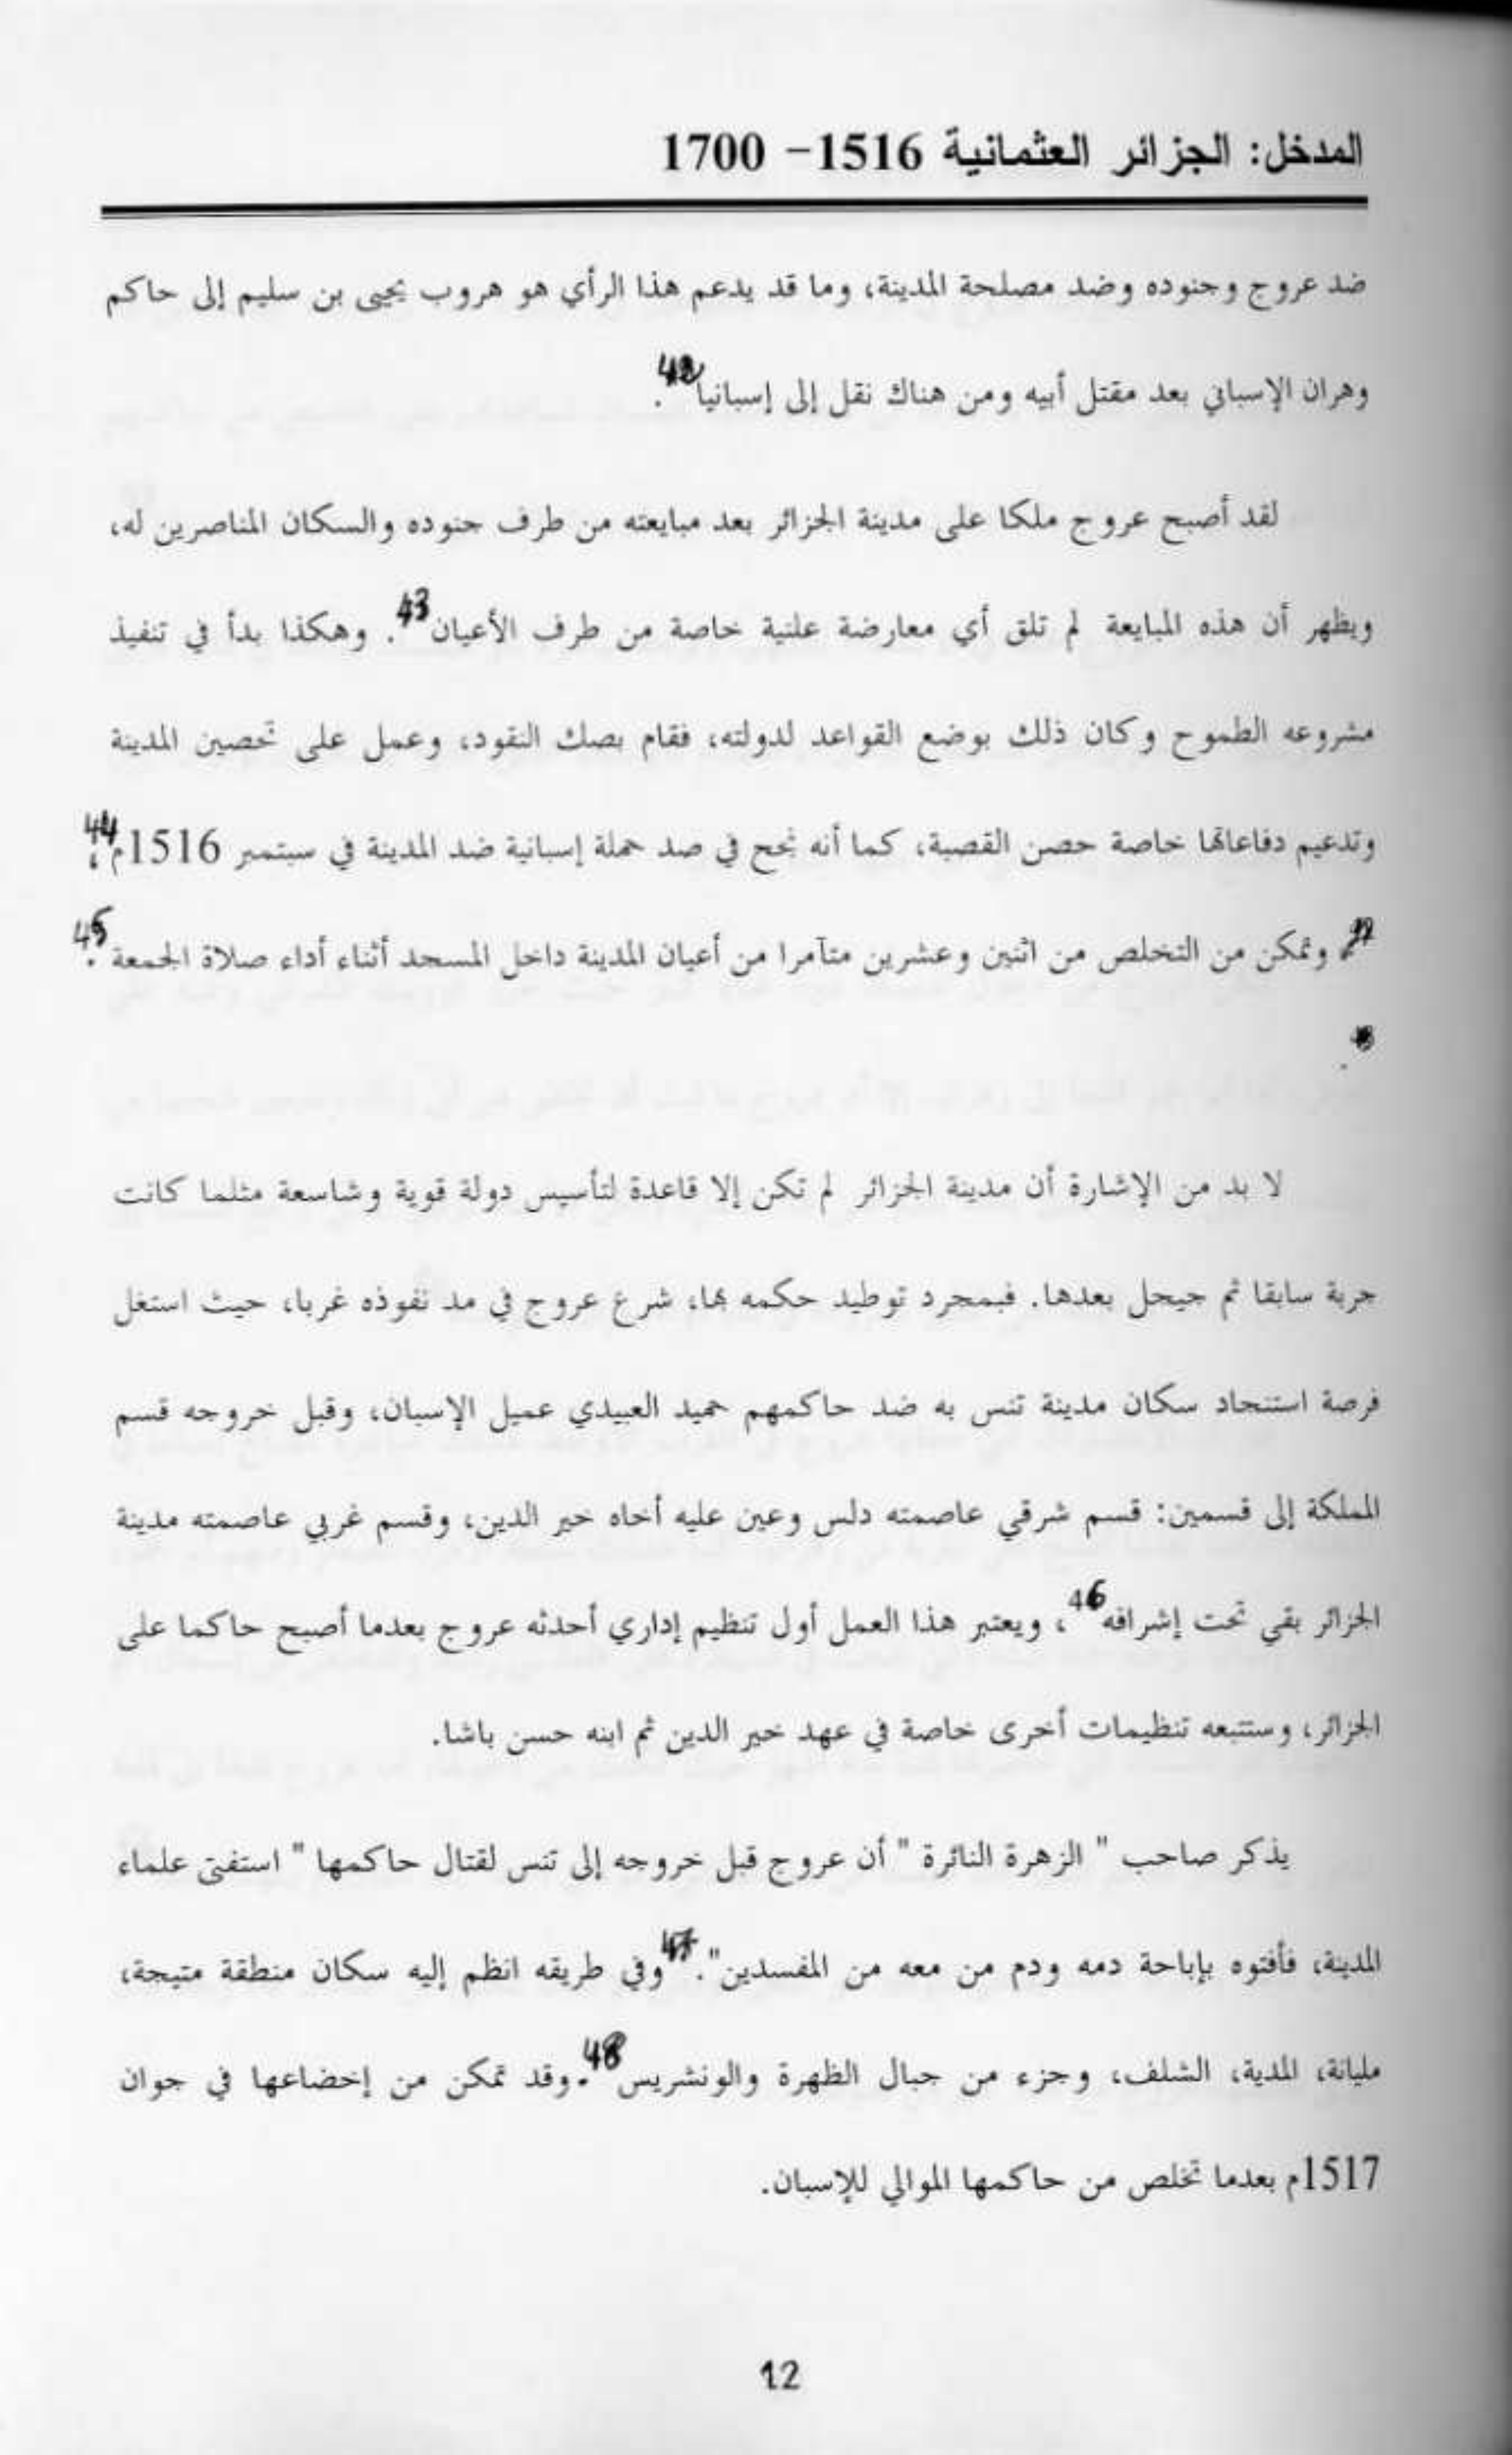 المدخل: الجزائر العثمانية 1516- 1700
ضد عروج وجنوده وضد مصلحة المدينة، وما قد يدعم هذا الرأي هو هروب يحيى بن سليم إلى حاكم
وهران الإسباني بعد مقتل أبيه ومن هناك نقل إلى إسبانيا42.
لقد أصبح عروج ملكا على مدينة الجزائر بعد مبايعته من طرف جنوده والسكان المناصرين له،
ويظهر أن هذه المبايعة لم تلق أي معارضة علنية خاصة من طرف الأعيان43. وهكذا بدأ في تنفيذ
مشروعه الطموح وكان ذلك بوضع القواعد لدولته، فقام بصك النقود، وعمل على تحصين المدينة
وتدعيم دفاعاتها خاصة حصن القصبة، كما أنه نجح في صد حملة إسبانية ضد المدينة في سبتمبر 1516م44،
وتمكن من التخلص من اثنين وعشرين متآمرا من أعيان المدينة داخل المسجد أثناء أداء صلاة الجمعة45.
لا بد من الإشارة أن مدينة الجزائر لم تكن إلا قاعدة لتأسيس دولة قوية وشاسعة مثلما كانت
جربة سابقا ثم جيجل بعدها. فبمجرد توطيد حكمه بها، شرع عروج في مد نفوذه غربا، حيث استغل
فرصة استنجاد سكان مدينة تنس به ضد حاكمهم حميد العبيدي عميل الإسبان، وقبل خروجه قسم
المملكة إلى قسمين: قسم شرقي عاصمته دلس وعين عليه أخاه خير الدين، وقسم غربي عاصمته مدينة
الجزائر بقي تحت إشرافه46، ويعتبر هذا العمل أول تنظيم إداري أحدثه عروج بعدما أصبح حاكما على
الجزائر، وستتبعه تنظيمات أخرى خاصة في عهد خير الدين ثم ابنه حسن باشا.
يذكر صاحب " الزهرة النائرة " أن عروج قبل خروجه إلى تنس لقتال حاكمها " استفتى علماء
المدينة، فأفتوه بإباحة دمه ودم من معه من المفسدين".47 وفي طريقه انظم إليه سكان منطقة متيجة،
مليانة، المدية، الشلف، وجزء من جبال الظهرة والونشريس48. وقد تمكن من إخضاعها في جوان
1517م بعدما تخلص من حاكمها الموالي للإسبان.
12